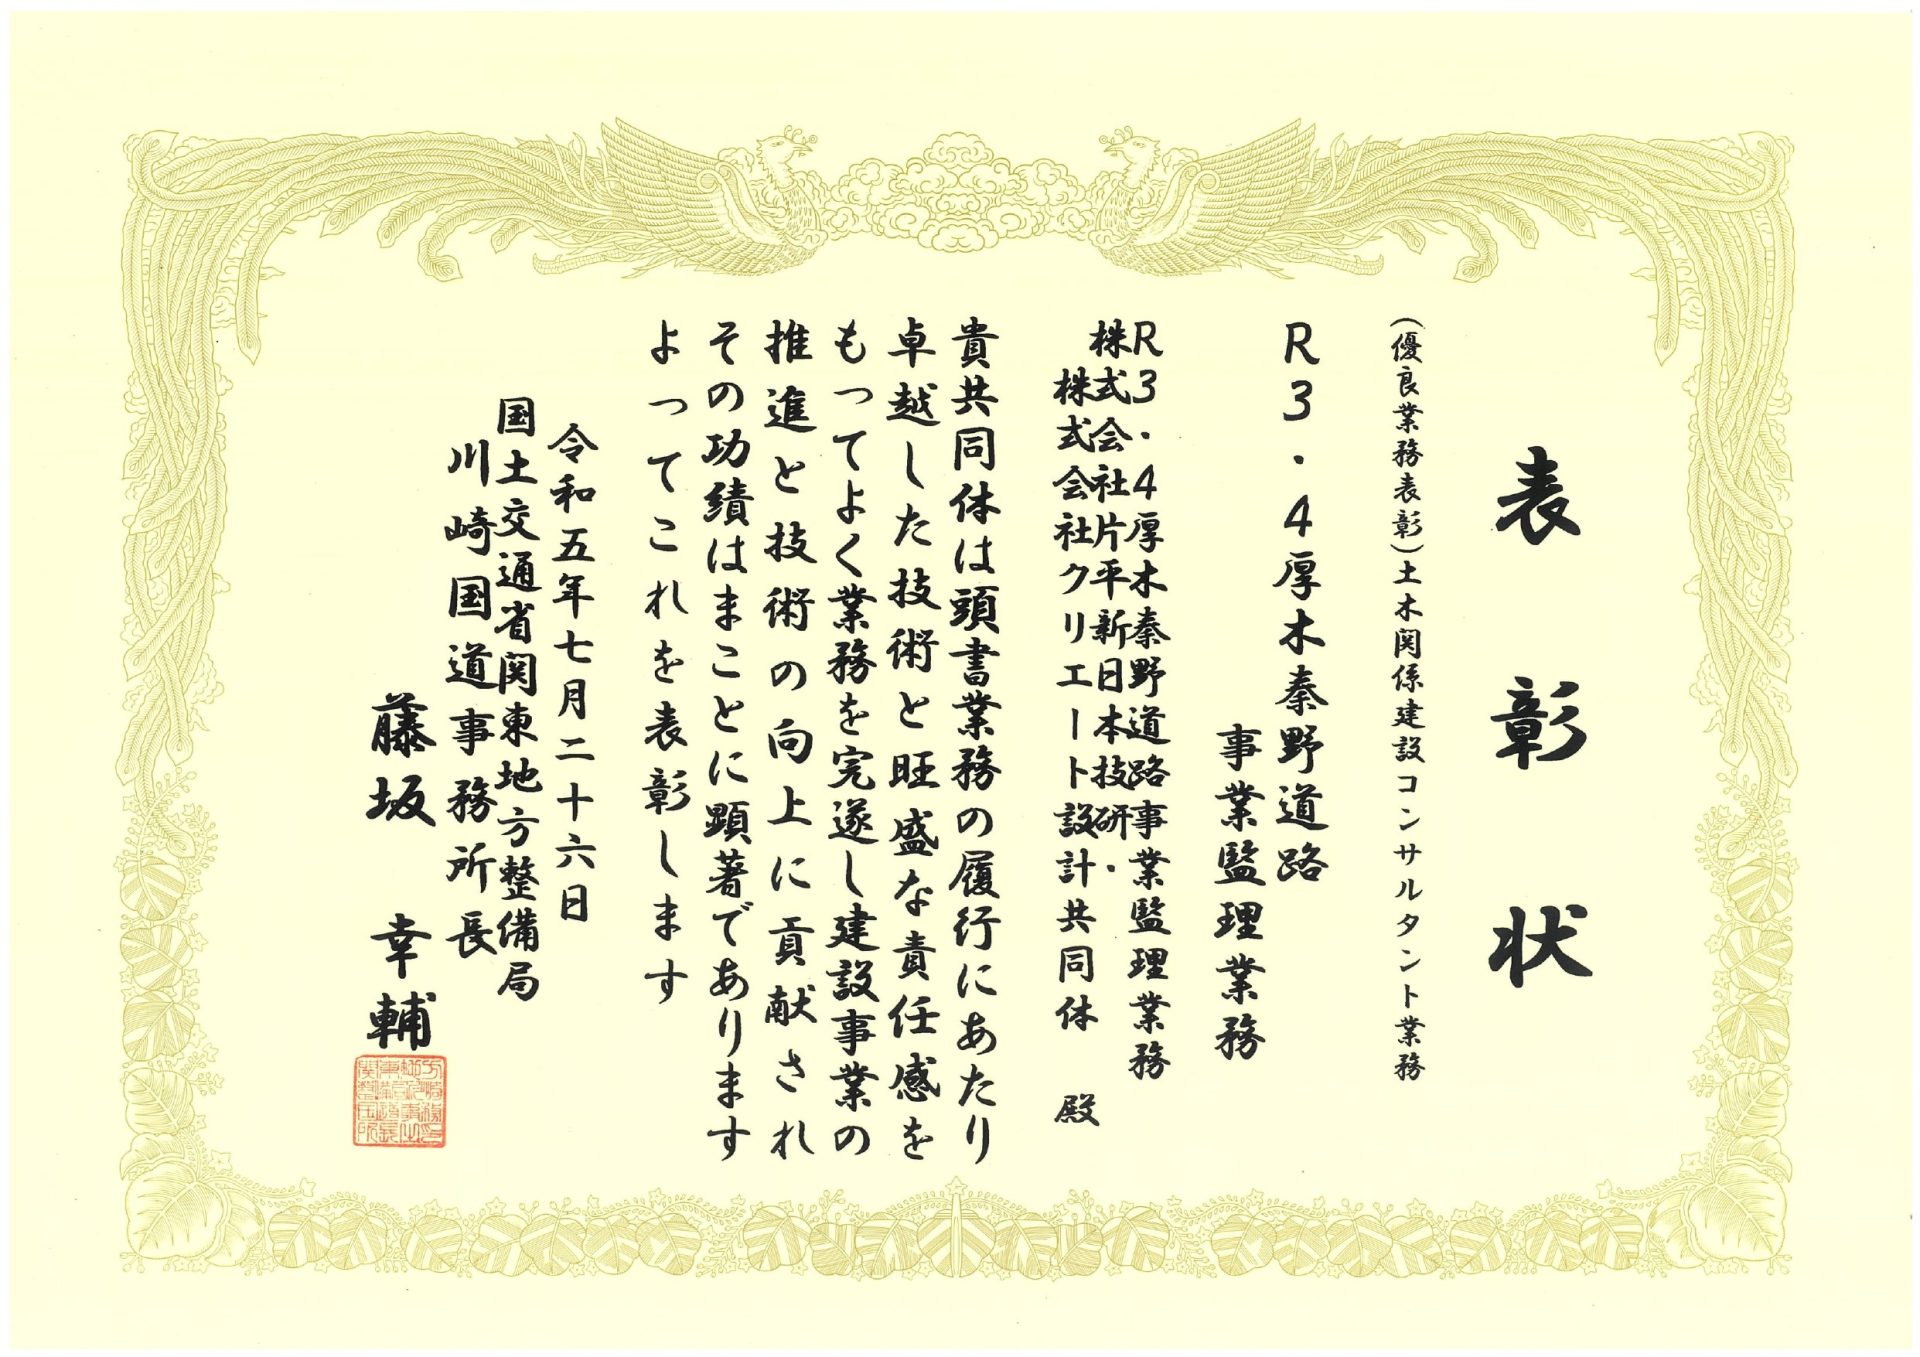 表彰状
(優良業務表彰)土木関係建設コンサルタント業務
R3・4厚木秦野道路
事業監理業務
R3・4厚木秦野道路事業監理業務
株式会社片平新日本技研・
株式会社クリエート設計共同体 殿
貴共同体は頭書業務の履行にあたり
卓越した技術と旺盛な責任感を
もってよく業務を完遂し建設事業の
推進と技術の向上に貢献され
その功績はまことに顕著であります
よってこれを表彰します
令和五年七月二十六日
国土交通省関東地方整備局
川崎国道事務所長
藤坂幸輔